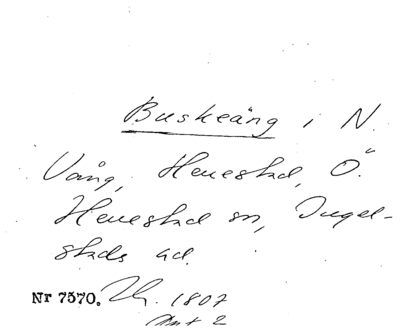 Buskeäng i N.
Vång, Henestad, Ö.
Henestad sn, Ingel-
stads hd.
Nr 7570. 1807
Akt 2